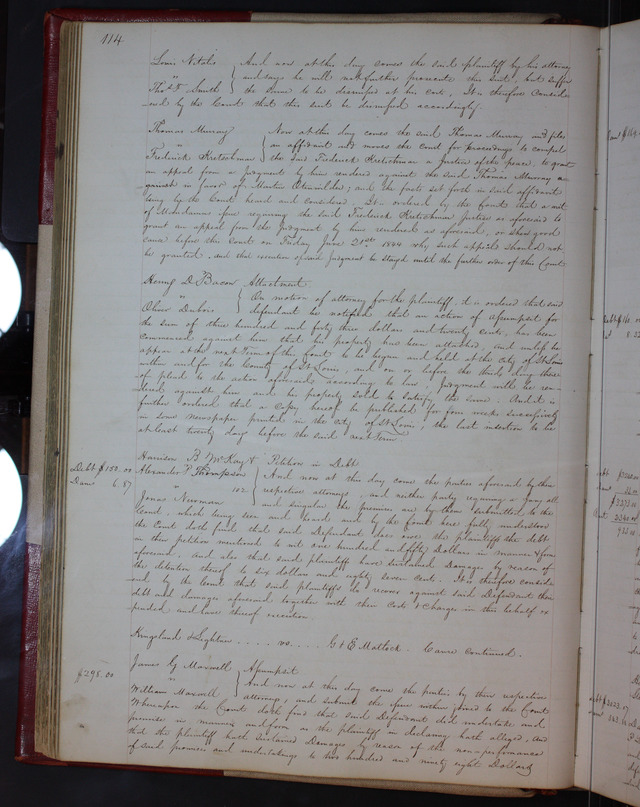 114
Louis Nitels } And now at this day comes the said plaintiff by his attorney
" } and says he will not further prosecute this suit, but suffer
Thos F. Smith } the same to be dismissed at his cost, It is therefore consid-
ered by the Court that this suit be dismissed accordingly.
Thomas Murray } Now at this day comes the said Thomas Murray and files
" } an affidavit and moves the Court for proceedings to compel
Frederick Kretschmar } the said Frederick Kretschmar a Justice of the peace, to grant
an appeal from a Judgment by him rendered against the said Thomas Murray a-
garnish in favor of Martin and the facts set forth in said affidavit
being by the Court heard and considered, It is ordered by the Court that a writ
of Mandamus issue requiring the said Frederick Kretschmar Justice as aforesaid to
grant an appeal from the Judgment by him rendered as aforesaid, or shew good
cause before this Court on Friday June 21st 1844 why such appeal should not
be granted, and that execution of said Judgment be stayed until the further order of this Court
Henry D. Bacon } Attachment
" } On motion of attorney for the plaintiff, it is ordered that said
Oliver Dubois } defendant be notified that an action of assumpsit for
the sum of three hundred and forty three dollars and twenty cents, has been
commenced against him that his property has been attached, and unless he
appear at the next Term of this Court to be begun and held at the City of St Louis
within and for the County of St Louis, and on or before the third day there-
of plead to the action aforesaid according to law, Judgment will be ren-
dered against him and his property sold to satisfy the same: And it is
further ordered that a Copy hereof be published for four weeks successively
in some newspaper printed in the City of St Louis, the last insertion to be
at least twenty days before the said next Term
Harrison B McKay & } Petition in Debt
Debt $150.00 Alexander P Thompson } And now at this day come the parties aforesaid by their
Dam 6.87 102 } respective attorneys, and neither party requiring a Jury all
Jonas Newman } and singular the premises are by them submitted to the
Court, which being seen and heard and by the Court here fully understood
the Court doth find that said Defendant does owe the plaintiffs the debt
in their petition mentioned to wit one hundred and fifty Dollars in manner & form
aforesaid. And also that said plaintiffs have sustained Damages by reason of
the detention thereof to six dollars and eighty seven cents. It is therefore consid-
ered by the Court that said plaintiffs do recover against said Defendant their
debt and damages aforesaid together with their Costs & Charges in this behalf ex-
pended and have thereof execution.
Kingsland & Lightner .... vs .... G & E Matlock. Cause continued.
James G Maxwell } Assumpsit
$298.00 " } And now at this day come the parties by their respective
William Maxwell } attorneys, and submit the issue within joined to the Court
Whereupon the Court doth find that said Defendant did undertake and
promise in manner and form as the plaintiff in declaring hath alleged, and
that the plaintiff hath sustained Damages by reason of the nonperformance
of said promises and undertakings to two hundred and ninety eight Dollars